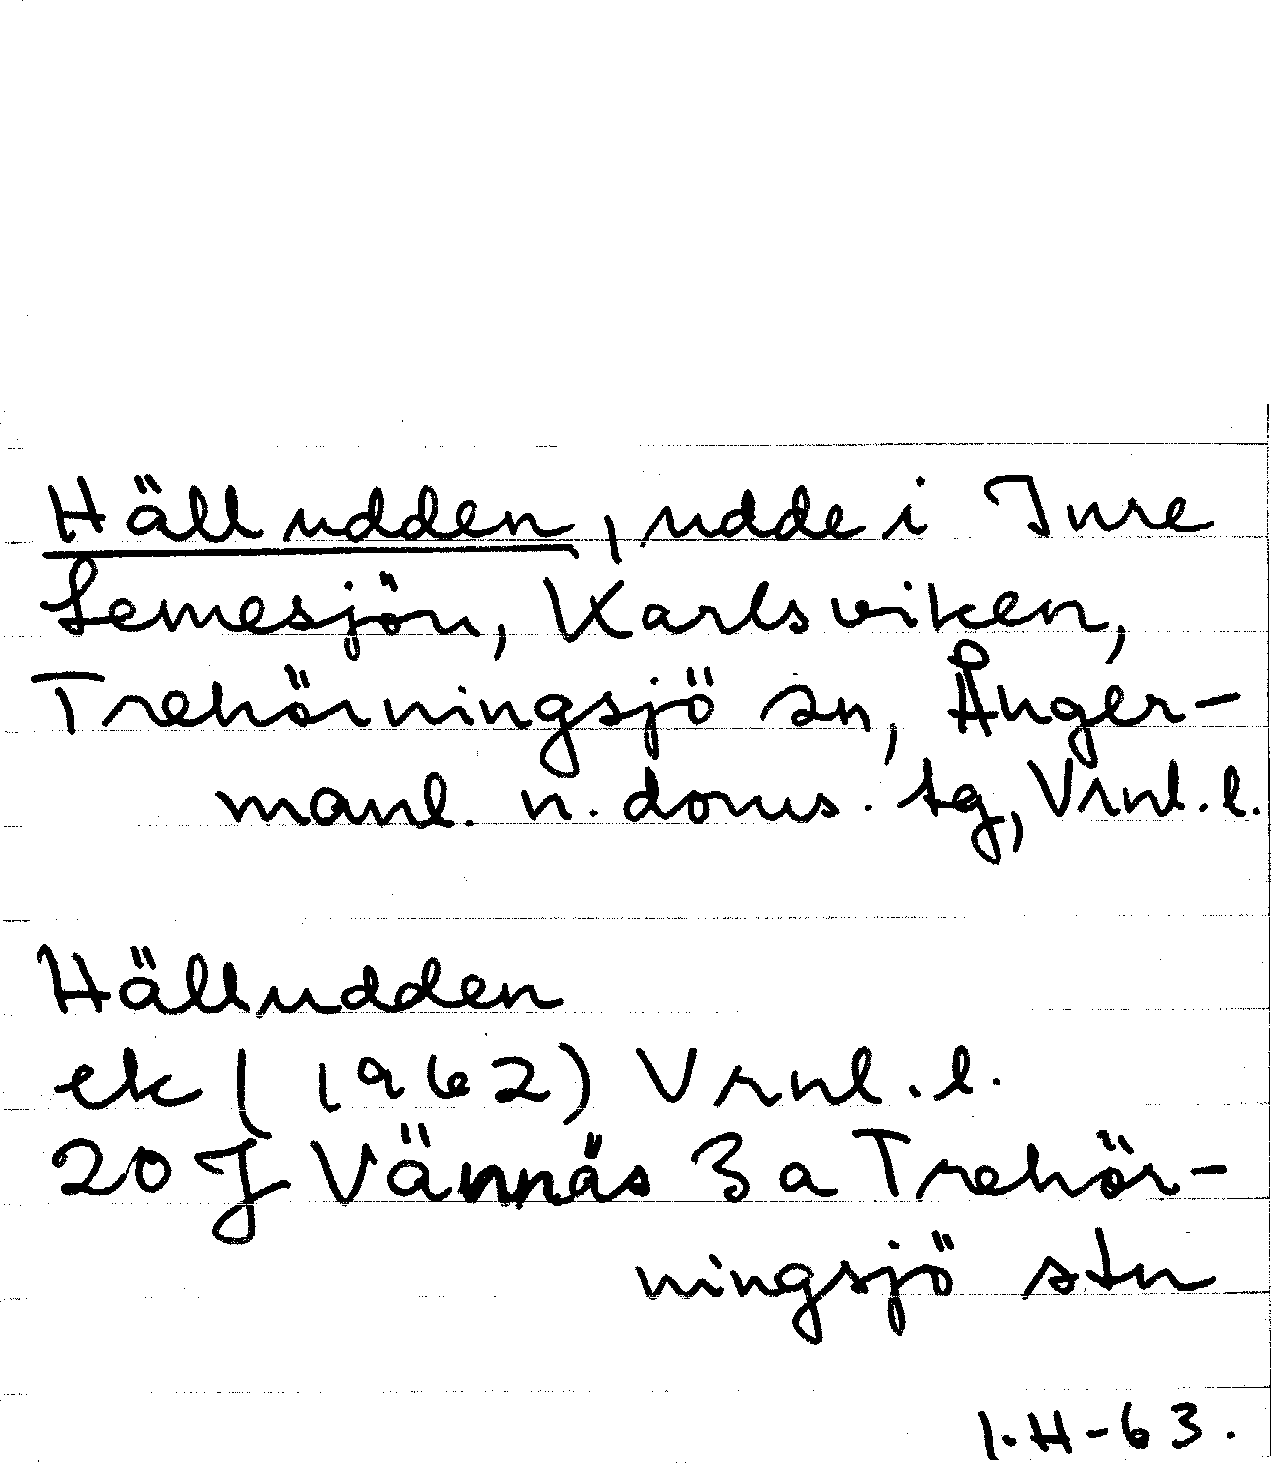 Hälludden, udde i Inre
Lemesjön, Karlsviken,
Trehörningsjö sn, Ånger-
manl. n. doms. tg, Vrnl. l.
Hälludden
ek (1962) Vrnl. l.
20 J Vännäs 3 a Trehör-
ningsjö stn
I.H-63.